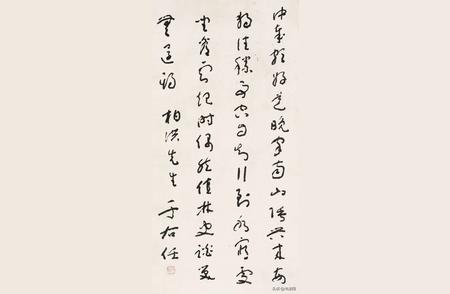 中歲頗好道晚家南山陲興來每
獨往勝事空自知行到水窮處
坐看雲起時偶然值林叟談笑
無還期 柏洪先生 于右任